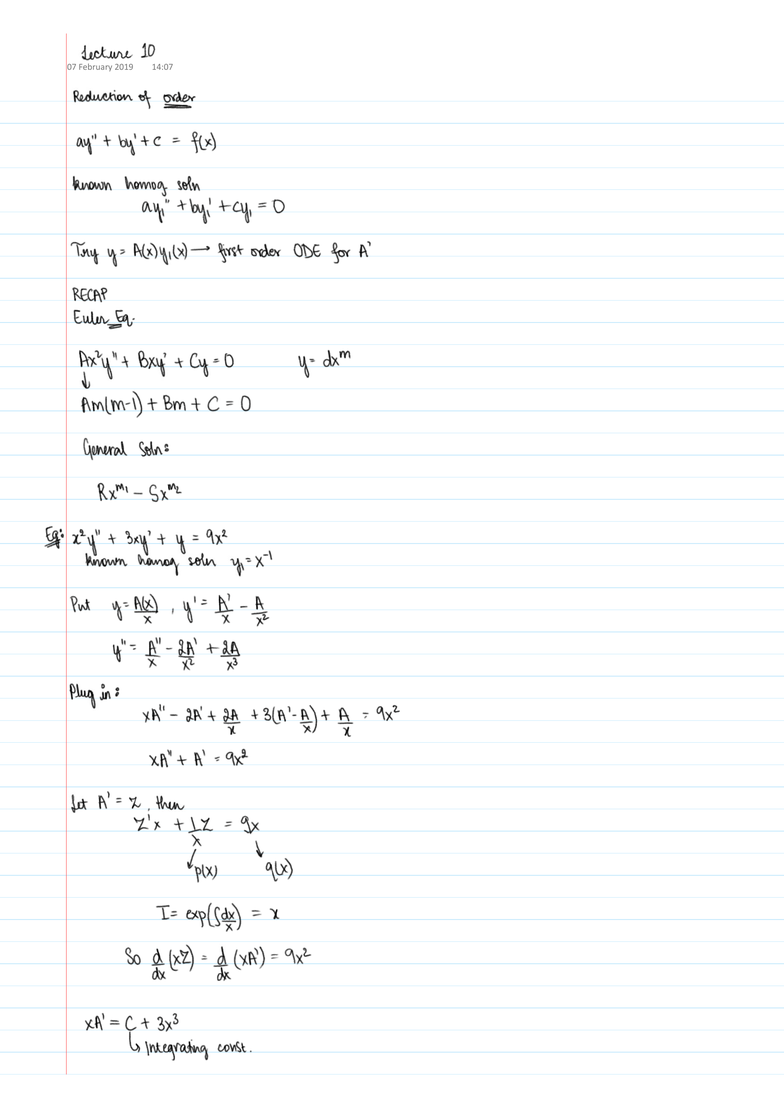 Lecture 10
07 February 2019 14:07
Reduction of order
ay'' + by' + c = f(x)
known homog soln
ay₁'' + by₁' + cy₁ = 0
Try y = A(x)y₁(x) → first order ODE for A'
RECAP
Euler Eq.
Ax²y'' + Bxy' + Cy = 0 y = dx^m
↓
Am(m-1) + Bm + C = 0
General Soln:
Rx^m₁ - Sx^m₂
Eg: x²y'' + 3xy' + y = 9x²
known homog soln y₁ = x⁻¹
Put y = A(x)/x , y' = A'/x - A/x²
y'' = A''/x - 2A'/x² + 2A/x³
Plug in:
xA'' - 2A' + 2A/x + 3(A' - A/x) + A/x = 9x²
xA'' + A' = 9x²
Let A' = Z, then
Z'x + 1/x Z = 9x
p(x) q(x)
I = exp(∫dx/x) = x
So d/dx (xZ) = d/dx (xA') = 9x²
xA' = C + 3x³
↳ Integrating const.